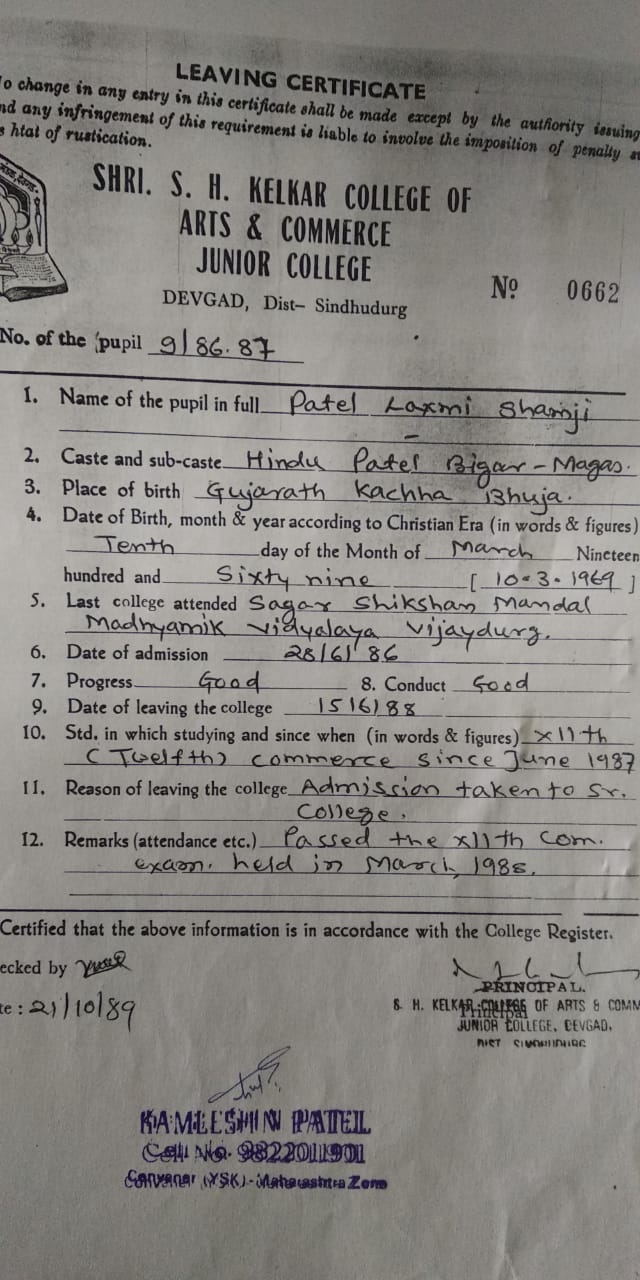 LEAVING CERTIFICATE
o change in any entry in this certificate shall be made except by the authority issuing
nd any infringement of this requirement is liable to involve the imposition of penalty
s htat of rustication.
SHRI. S. H. KELKAR COLLEGE OF
ARTS & COMMERCE
JUNIOR COLLEGE
DEVGAD, Dist– Sindhudurg
Nº 0662
No. of the pupil 9/86.87
1. Name of the pupil in full Patel Laxmi Shamji
2. Caste and sub-caste Hindu Patel Bigar-Magas.
3. Place of birth Gujarath Kachha Bhuja.
4. Date of Birth, month & year according to Christian Era (in words & figures)
Tenth day of the Month of March Nineteen
hundred and Sixty nine [ 10.3.1969 ]
5. Last college attended Sagar Shikshan Mandal
Madhyamik Vidyalaya Vijaydurg.
6. Date of admission 28/6/86
7. Progress Good 8. Conduct Good
9. Date of leaving the college 15/6/88
10. Std. in which studying and since when (in words & figures) XIIth
(Twelfth) commerce since June 1987
11. Reason of leaving the college Admission taken to Sr.
College.
12. Remarks (attendance etc.) Passed the XIIth Com.
exam. held in March, 1988.
Certified that the above information is in accordance with the College Register.
ecked by
te : 21/10/89
PRINCIPAL.
Principal
S. H. KELKAR COLLEGE OF ARTS & COMM
JUNIOR COLLEGE, DEVGAD,
DIST SINDHUDURG
KAMLESH N PATEL
Cell No. 9822011901
Convenar (YSK) - Maharashtra Zone